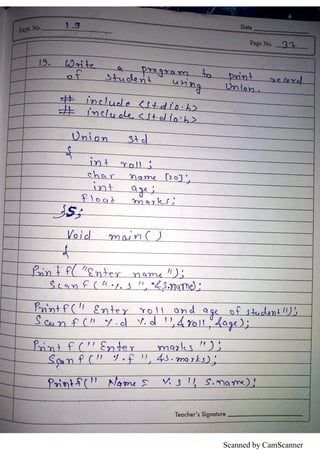 Expt. No. 19
Date
Page No. 37
19. Write a program to print record
of student using Union.
# include <stdio.h>
# include <stdio.h>
Union std
{
int roll ;
char name [20];
int age;
float marks;
}S;
Void main( )
{
Printf( "Enter name ");
Scanf( "%s ", &S.name);
Printf(" Enter roll and age of student");
Scanf(" %d %d ", &roll, &age);
Printf(" Enter marks ");
Scanf(" %f ", &s.marks);
Printf(" Name = %s ", S.name);
Teacher's Signature
Scanned by CamScanner